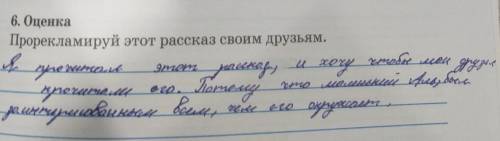 6. Оценка
Прорекламируй этот рассказ своим друзьям.
Я прочитала этот рассказ, и хочу чтобы мои друзья
прочитали его. Потому что маленький был
заинтересованным всем, чем его окружает.